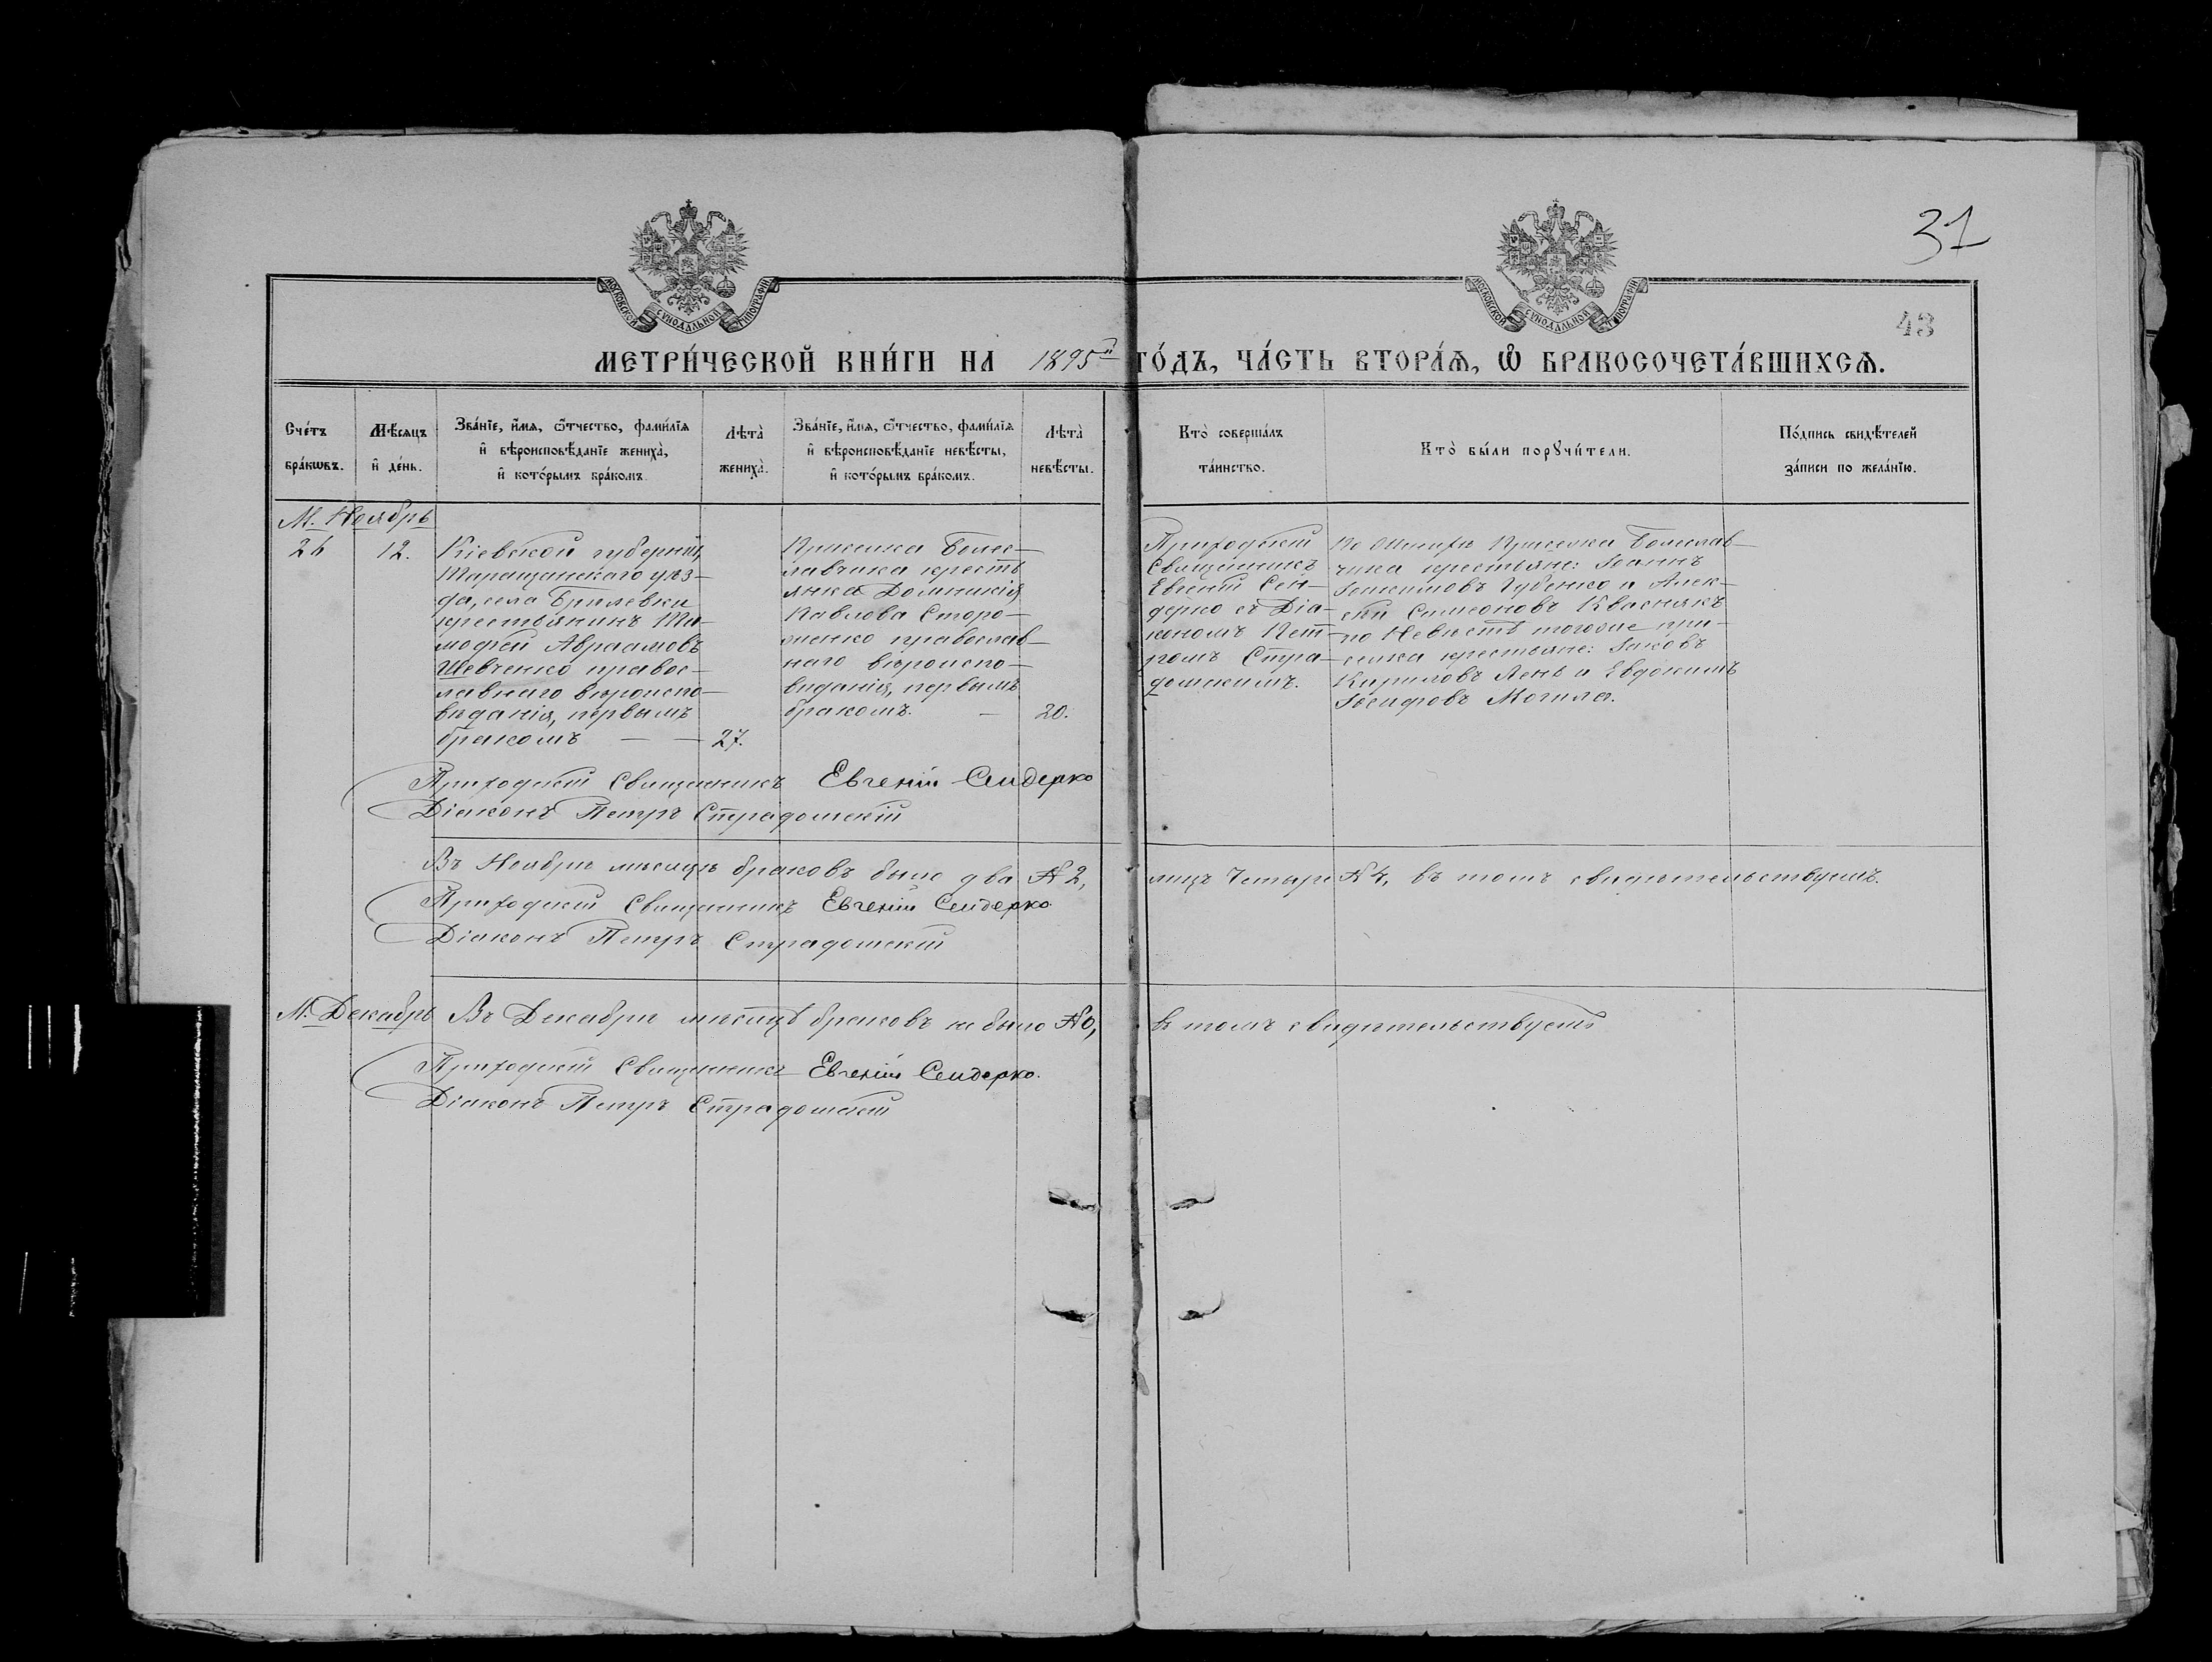 31
43
МОСКОВСКОЙ СѴНОДАЛЬНОЙ ТИПОГРАФІИ
МОСКОВСКОЙ СѴНОДАЛЬНОЙ ТИПОГРАФІИ
МЕТРИ́ЧЕСКОЙ КНИ́ГИ НА 1895й ГО́ДЪ, ЧА́СТЬ ВТОРА́Ѧ, Ѽ БРАКОСОЧЕТА́ВШИХСѦ.
Сче́тъ бра́кѡвъ.
Мѣ́сѧцъ и҆ де́нь.
Зва́нїе, и҆́мѧ, ѻ҆́тчество, фами́лїѧ и҆ вѣроисповѣ́данїе жениха̀, и҆ кото́рымъ бра́комъ.
Лѣта̀ жениха̀.
Зва́нїе, и҆́мѧ, ѻ҆́тчество, фами́лїѧ и҆ вѣроисповѣ́данїе невѣ́сты, и҆ кото́рымъ бра́комъ.
Лѣта̀ невѣ́сты.
Кто̀ соверша́лъ та́инство.
Кто̀ бы́ли порꙋчи́тели.
По́дпись свидѣ́телей за́писи по жела́нїю.
М. Ноябрь
12.
Кіевской губерніи,
Таращанскаго уѣз-
да, села Брилевки
крестьянинъ Ти-
мофей Авраамовъ
Шевченко правос-
лавнаго вѣроиспо-
вѣданія, первымъ
бракомъ — — 27.
Приселка Болес-
лавчика кресть
янка Домникія
Павлова Сторо-
женко православ-
наго вѣроиспо-
вѣданія, первымъ
бракомъ. — 20.
Приходскій
Священникъ
Евгеній Сен-
дерко съ Діа-
кономъ Пет-
ромъ Стра-
домскимъ.
По Женихѣ Приселка Болеслав-
чика крестьяне: Іоаннъ
Іоакимовъ Губенко и Алек-
сѣй Симеоновъ Кваснякъ
по Невѣстѣ тогоже при-
селка крестьяне: Іаковъ
Кириловъ Лень и Евдокимъ
Іосифовъ Могила.
Приходскій Священникъ Евгеній Сендерко
Діаконъ Петръ Страдомскій
Въ Ноябрѣ мѣсяцѣ браковъ было два № 2, лицъ Четыре № 4, въ томъ свидѣтельствуемъ.
Приходскій Священникъ Евгеній Сендерко.
Діаконъ Петръ Страдомскій
М. Декабрь Въ Декабрѣ мѣсяцѣ браковъ не было № 0, въ томъ свидѣтельствуемъ
Приходскій Священникъ Евгеній Сендерко.
Діаконъ Петръ Страдомскій